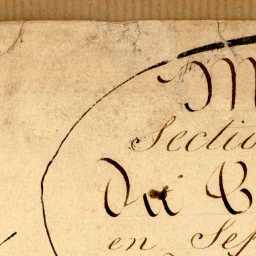 M
Sectio
du C
en Sep